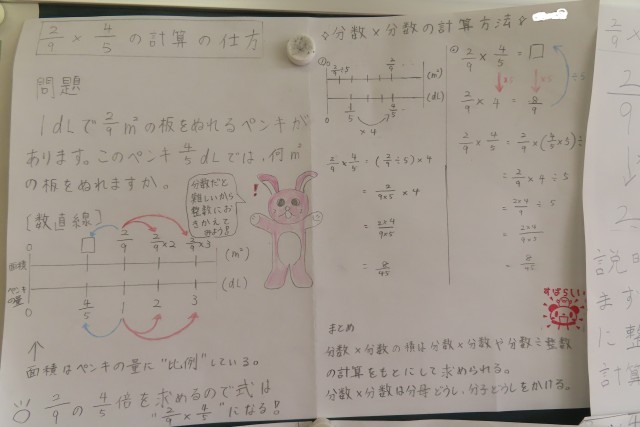 2/9 × 4/5 の計算の仕方
問題
1dLで 2/9 m²の板をぬれるペンキが
あります。このペンキ 4/5 dLでは、何m²
の板をぬれますか。
[数直線]
分数だと
難しいから
整数にお
きかえて
みよう!!
!
0 □ 2/9 2/9×2 2/9×3
面積 (m²)
ペンキの量 (dL)
0 4/5 1 2 3
↑
面積はペンキの量に"比例"している。
2/9 の 4/5 倍を求めるので式は
"2/9 × 4/5" になる!
◇分数×分数の計算方法◇
0 2/9÷5 2/9 ‥
(m²)
(dL)
0 1/5 4/5 ‥
×4
2/9 × 4/5 = (2/9 ÷ 5) × 4
= 2/9×5 × 4
= 2×4/9×5
= 8/45
2/9 × 4/5 = □
×5 ×5 ÷5
2/9 × 4 = 8/9
2/9 × 4/5 = 2/9 × (4/5 × 5) ÷
= 2/9 × 4 ÷ 5
= 2×4/9 ÷ 5
= 2×4/9×5
= 8/45
すばらしい
まとめ
分数×分数の積は分数×分数や分数÷整数
の計算をもとにして求められる。
分数×分数は分母どうし、分子どうしをかける。
2/9
2
説
ま
に整
計算